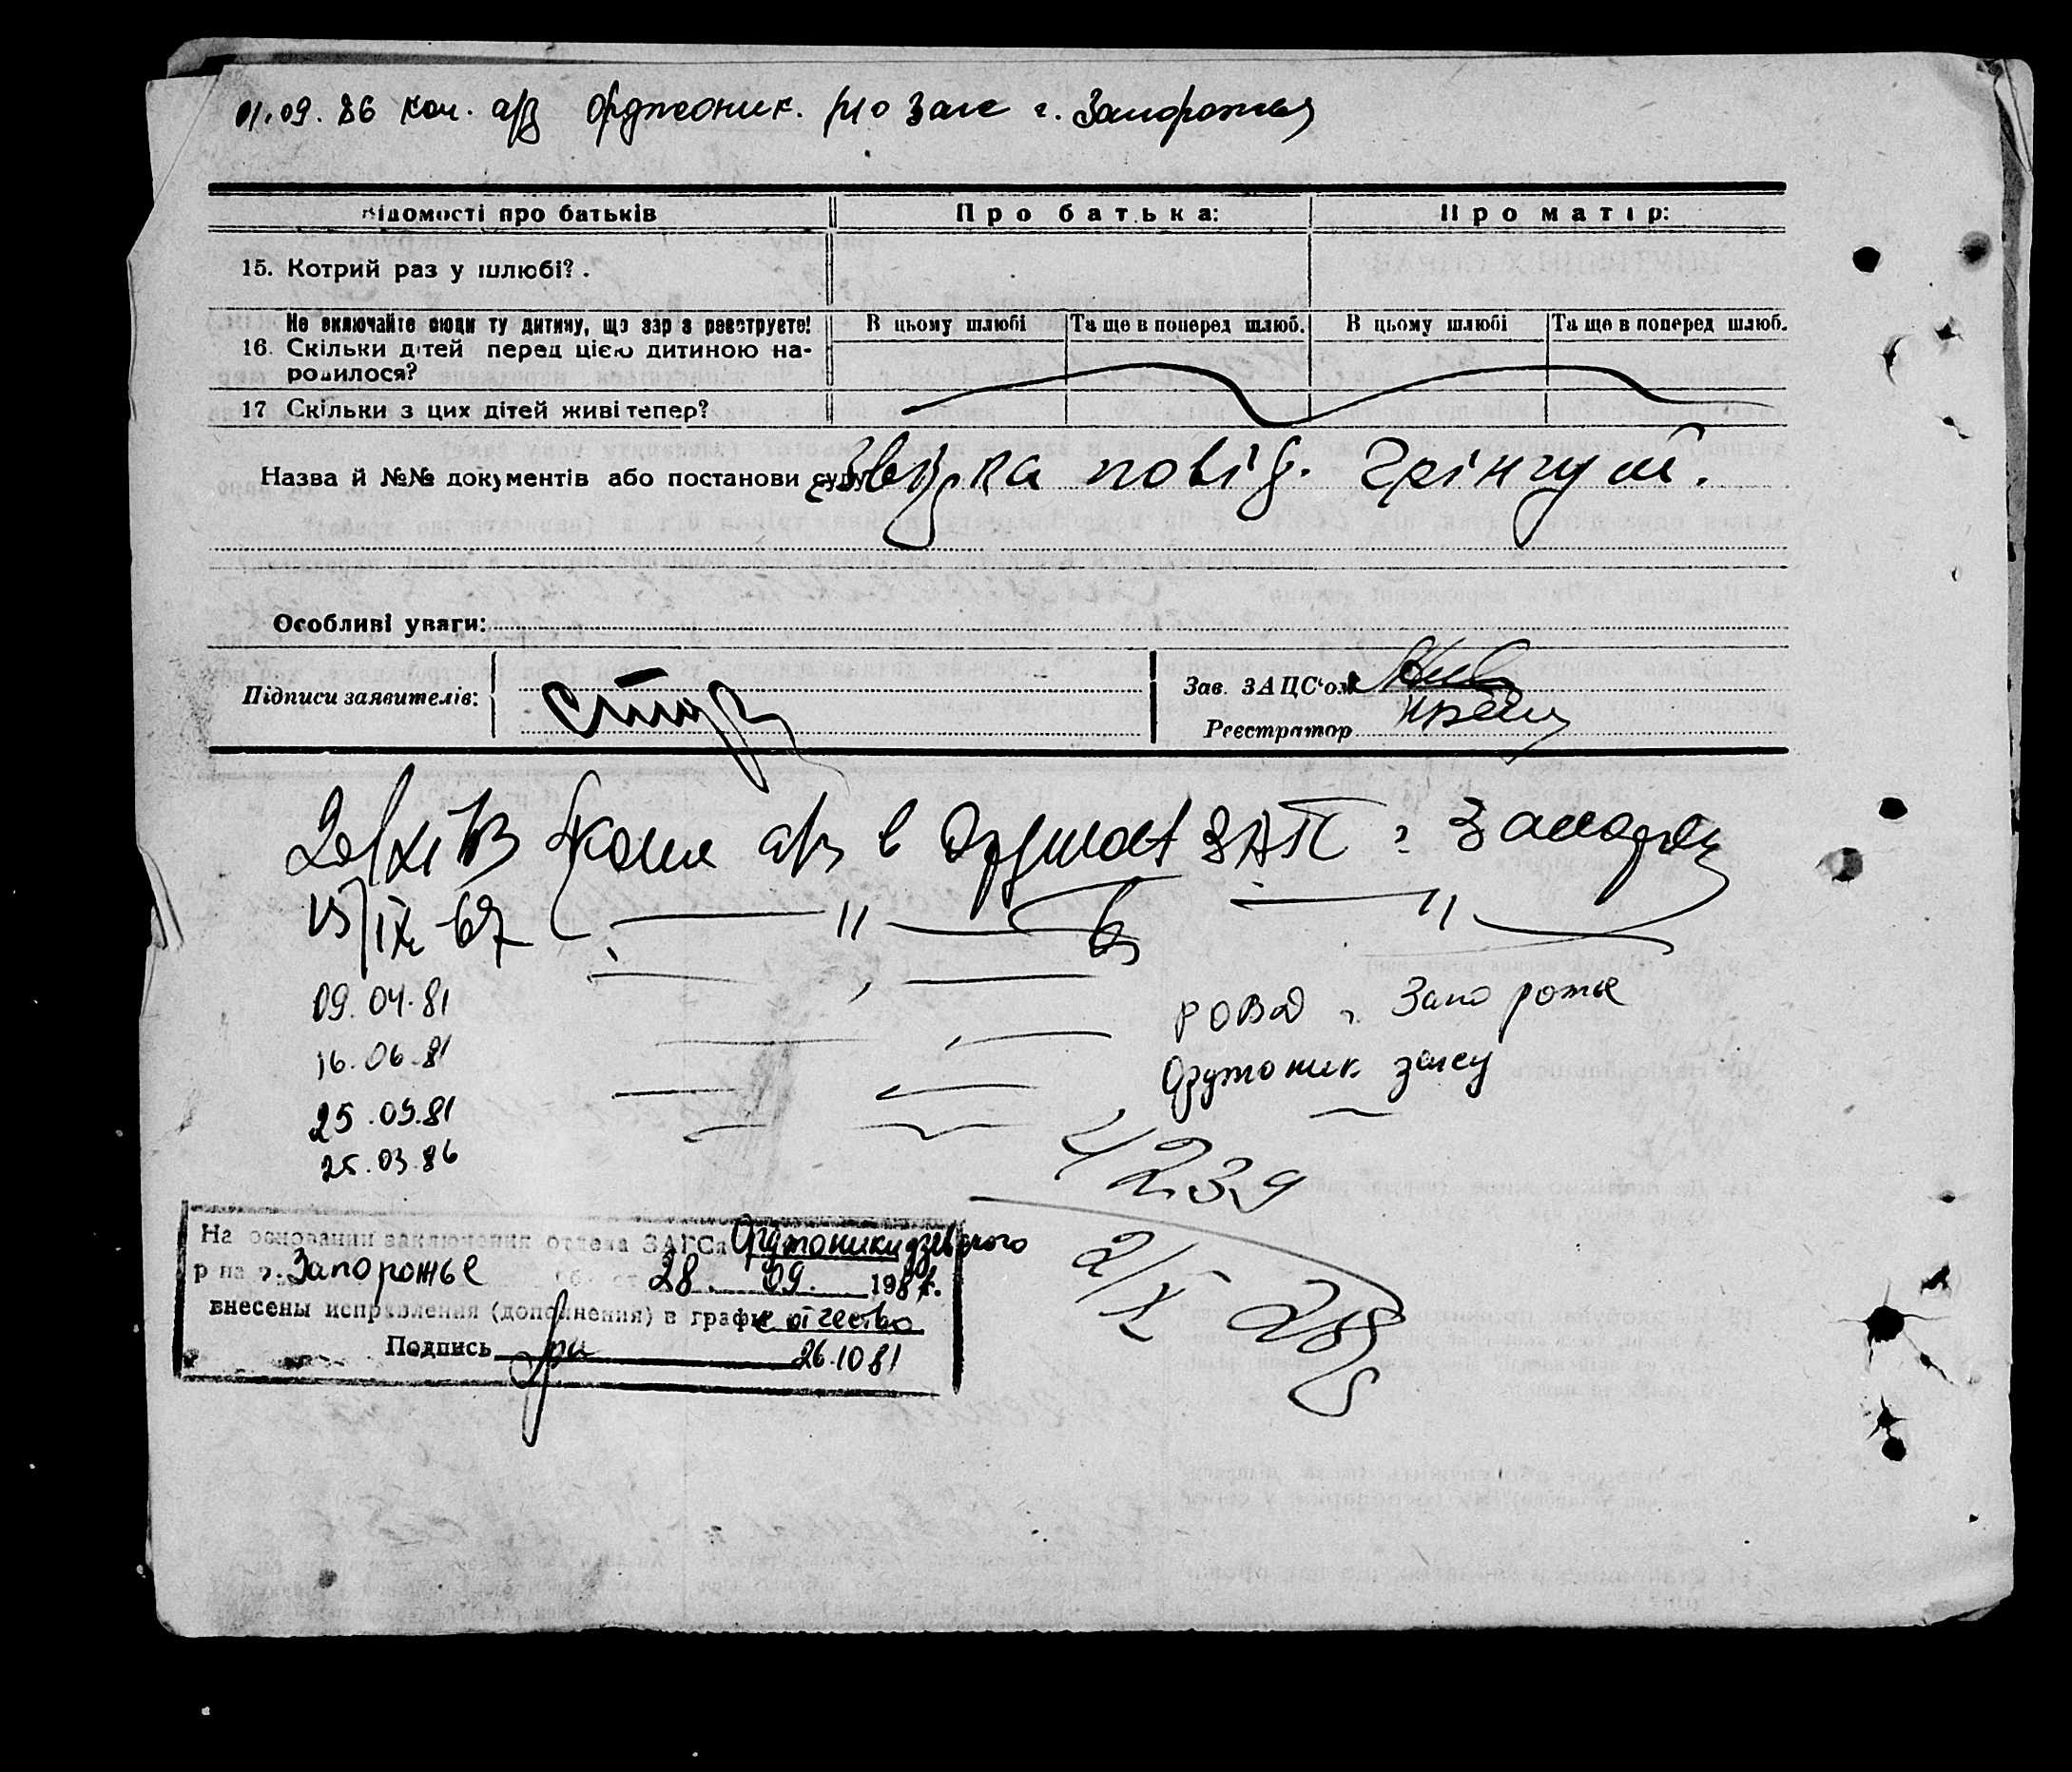 01.09.86 коп. а/з Орджоник. р/о Загс г. Запорожья
Відомості про батьків Про батька: Про матір:
15. Котрий раз у шлюбі?
Не включайте сюди ту дитину, що зар з реєструєте!
В цьому шлюбі Та ще в поперед шлюб. В цьому шлюбі Та ще в поперед шлюб.
16. Скільки дітей перед цією дитиною на-
родилося?
17 Скільки з цих дітей живі тепер?
Назва й №№ документів або постанови суду
Особливі уваги:
Підписи заявителів:
Зав. ЗАЦС'ом
Реєстратор
копия а/з в ЗАГС г Запорож
15/IX-67 — " — — " —
09.04.81 РОВД г. Запорожье
16.06.81 Орджоник. загсу
25.09.81
25.03.86
4239
2/X
На основании заключения отдела ЗАГСа Орджоникидзевского
р на г. Запорожье област 28. 09. 1981.
внесены исправления (дополнения) в графы отчество
Подпись 26.10 81